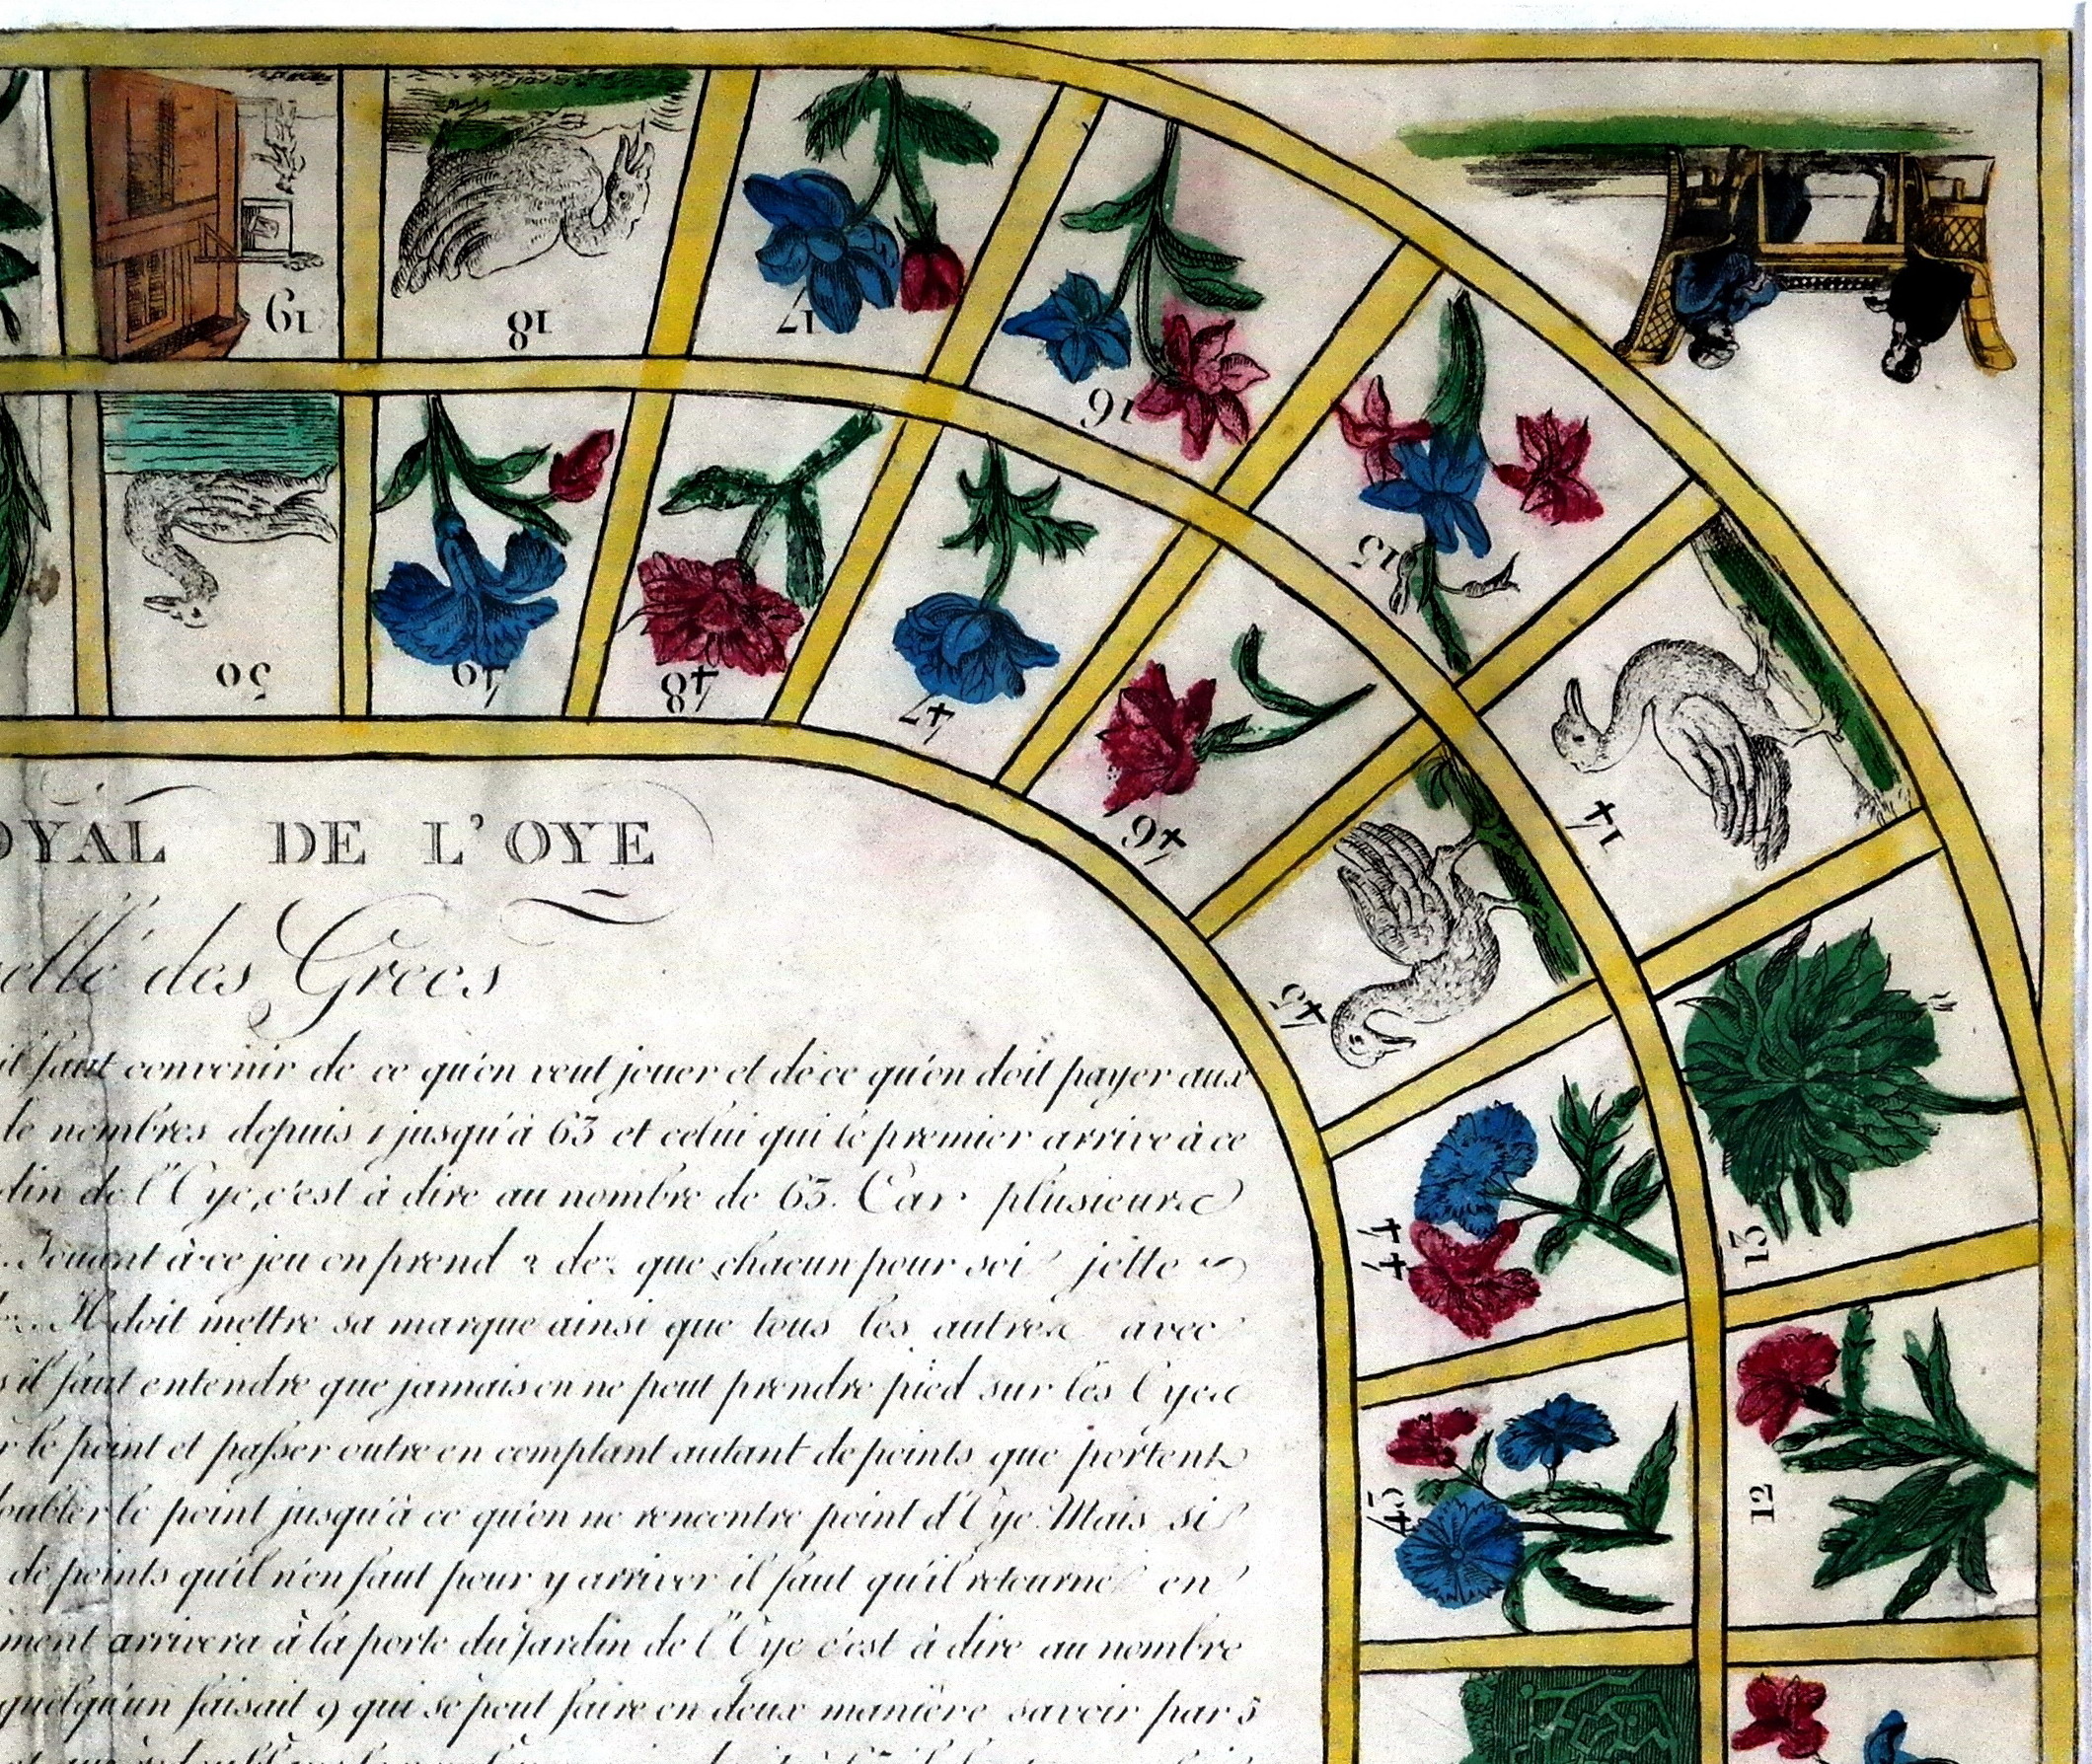 19
18
17
16
15
14
13
12
50
49
48
47
46
45
44
43
DE L'OYE
des Grecs
il faut convenir de ce qu'on veut jouer et de ce qu'on doit payer aux
de nombres depuis 1 jusqu'à 63 et celui qui le premier arrive à ce
de l'Oye, c'est à dire au nombre de 63. Car plusieurs
Jouant à ce jeu on prend 2 dez que chacun pour soi jette
Il doit mettre sa marque ainsi que tous les autres avec
il faut entendre que jamais on ne peut prendre pied sur les Oyes
le point et passer outre en comptant autant de points que portent
le point jusqu'à ce qu'on ne rencontre point d'Oye. Mais si
de points qu'il n'en faut pour y arriver il faut qu'il retourne en
arrivera à la porte du Jardin de l'Oye c'est à dire au nombre
quelqu'un faisait 9 qui se peut faire en deux manière savoir par 5